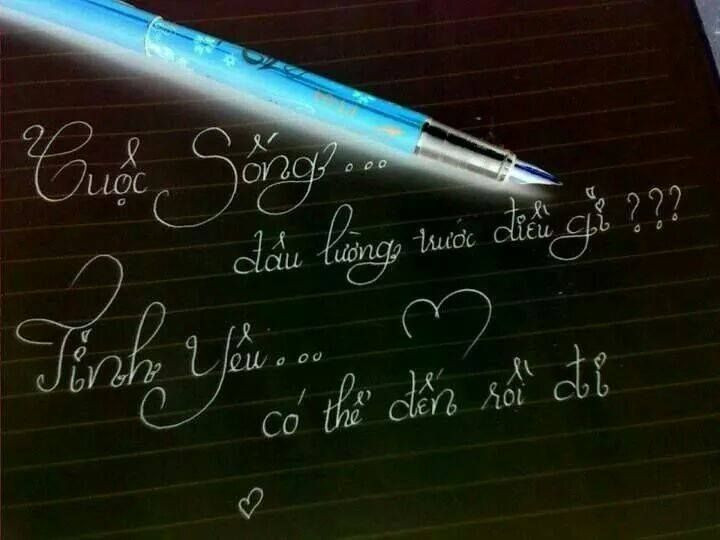 Cuộc Sống...
đâu lường trước điều gì ???
Tình Yêu...
có thể đến rồi đi